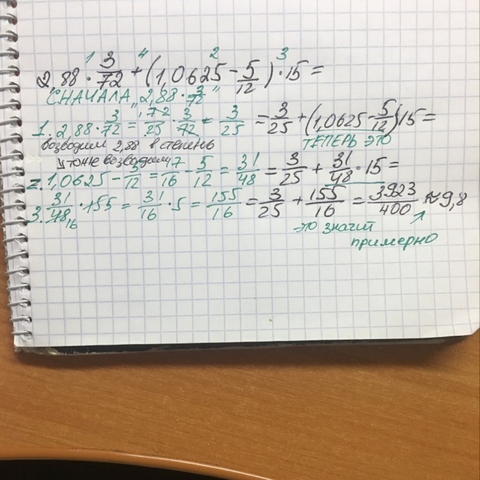 1 4 2 3
2,88 · 3/72 + (1,0625 - 5/12) · 15 =
"СНАЧАЛА „2,88 · 3/72"
1. 2,88 · 3/72 = 72/25 · 3/72 = 3/25 = 3/25 + (1,0625 - 5/12) 15 =
возводим 2,88 в степень ТЕПЕРЬ ЭТО
тоже возводим
2. 1,0625 - 5/12 = 17/16 - 5/12 = 31/48 = 3/25 + 31/48 · 15 =
3. 31/48 16 · 155 = 31/16 · 5 = 155/16 = 3/25 + 155/16 = 3923/400 ≈ 9,8
это значит
примерно